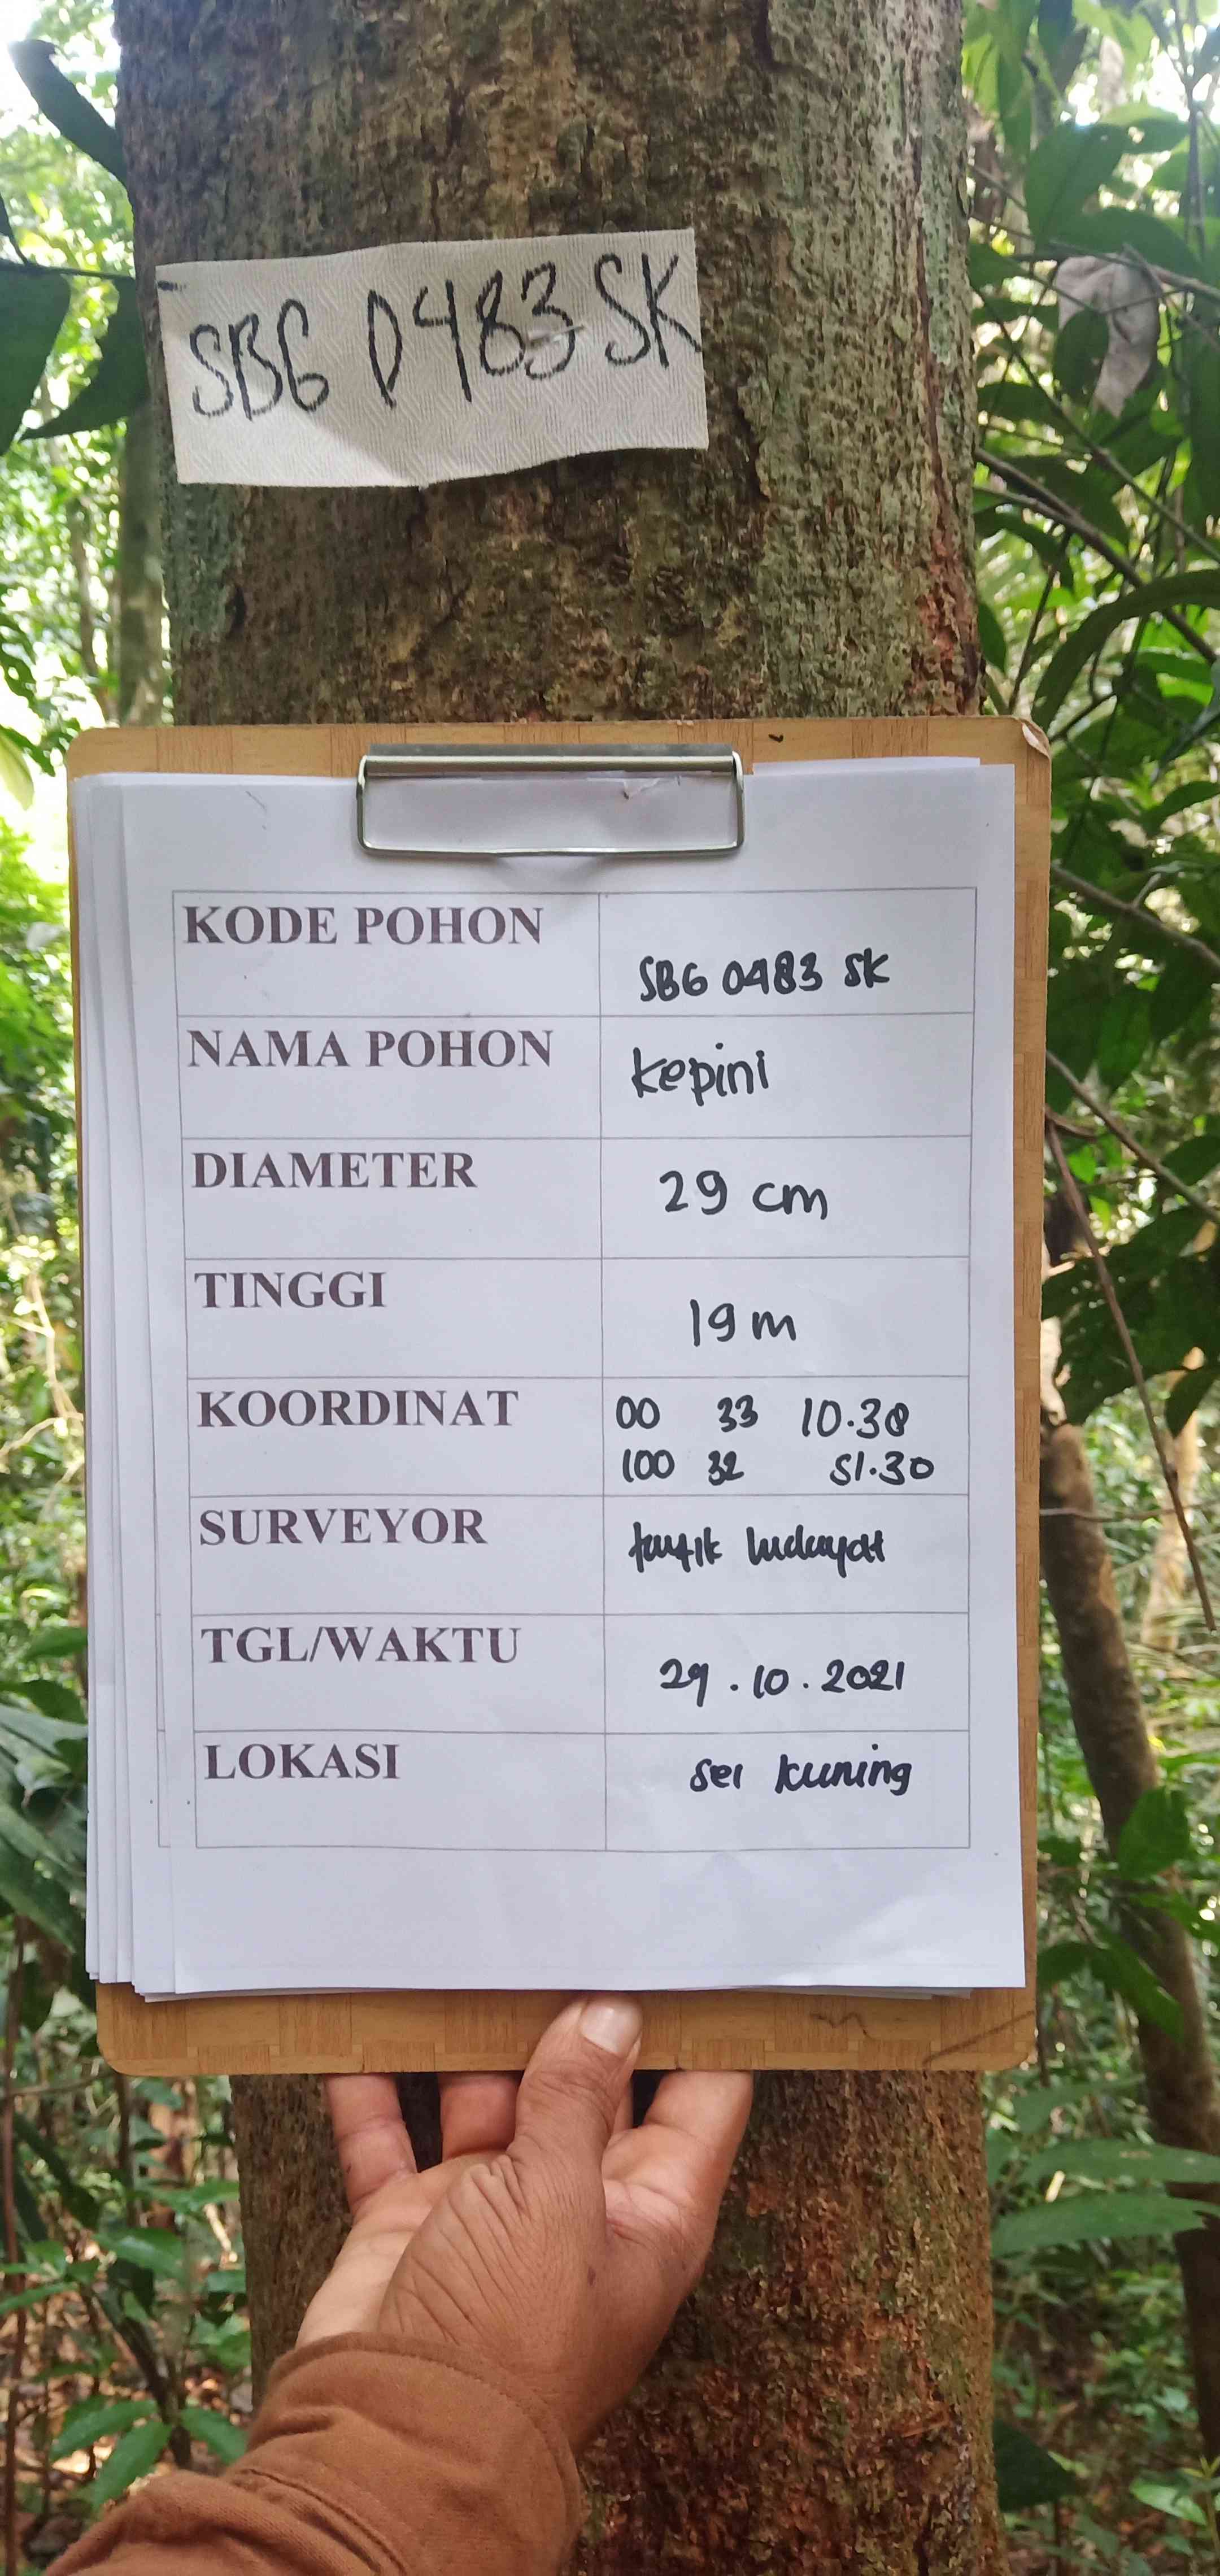 SBG 0483 SK
KODE POHON
SBG 0483 SK
NAMA POHON
kepini
DIAMETER
29 cm
TINGGI
19 m
KOORDINAT
00 33 10.38
100 32 51.30
SURVEYOR
taufik hidayat
TGL/WAKTU
29.10.2021
LOKASI
sei kuning